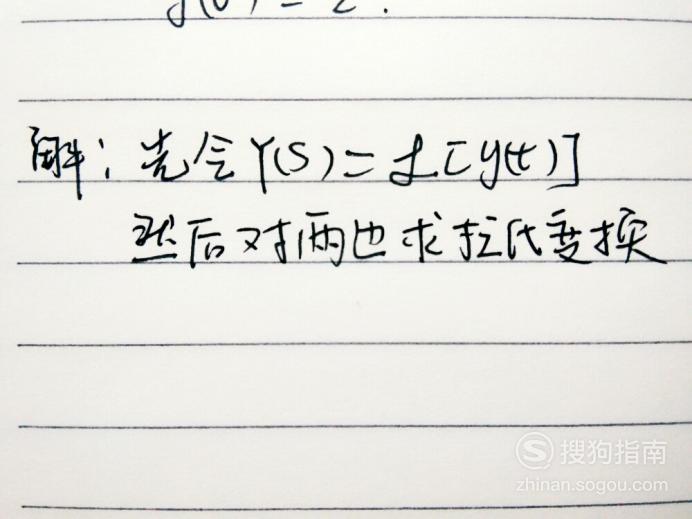 解：先令 Y(S) = ℒ[y(t)]
然后对两边求拉氏变换
搜狗指南
zhinan.sogou.com